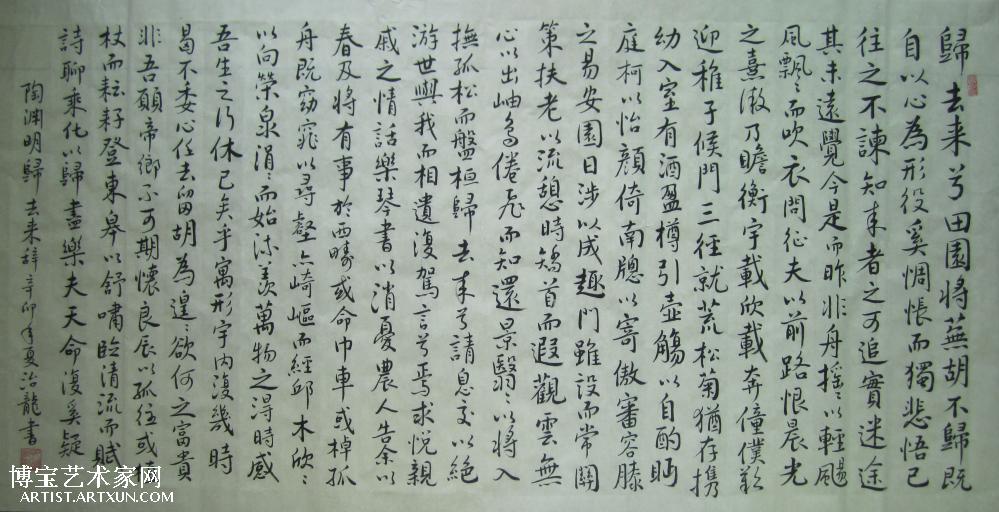 歸去来兮田園将蕪胡不歸既
自以心為形役奚惆悵而獨悲悟已
往之不諫知来者之可追實迷途
其未遠覺今是而昨非舟摇〻以輕颺
風飄〻而吹衣問征夫以前路恨晨光
之熹微乃瞻衡宇載欣載奔僮僕歡
迎稚子候門三徑就荒松菊猶存携
幼入室有酒盈樽引壺觴以自酌眄
庭柯以怡顔倚南牕以寄傲審容膝
之易安園日涉以成趣門雖設而常關
策扶老以流憩時矯首而遐觀雲無
心以出岫鳥倦飛而知還景翳〻以将入
撫孤松而盤桓歸去来兮請息交以絶
游世與我而相遺復駕言兮焉求悦親
戚之情話樂琴書以消憂農人告余以
春及将有事於西疇或命巾車或棹孤
舟既窈窕以尋壑亦崎嶇而經邱木欣〻
以向榮泉涓〻而始流羨萬物之得時感
吾生之行休已矣乎寓形宇内復幾時
曷不委心任去留胡為遑〻欲何之富貴
非吾願帝鄉不可期懷良辰以孤往或植
杖而耘耔登東皋以舒嘯臨清流而賦
詩聊乘化以歸盡樂夫天命復奚疑
陶淵明歸去来辞辛卯年夏治龍書
博宝艺术家网
ARTIST.ARTXUN.COM